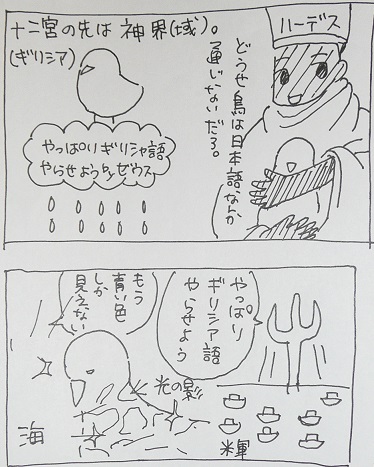 十二宮の先は神界(域)。
(ギリシア)
ハーデス
どうせ鳥は日本語なんか
通じないだろ。
やっぱりギリシャ語
やらせようbyゼウス
やっぱり
ギリシア語
やらせよう
もう
青い色
しか
見えない
光の影
海
輝